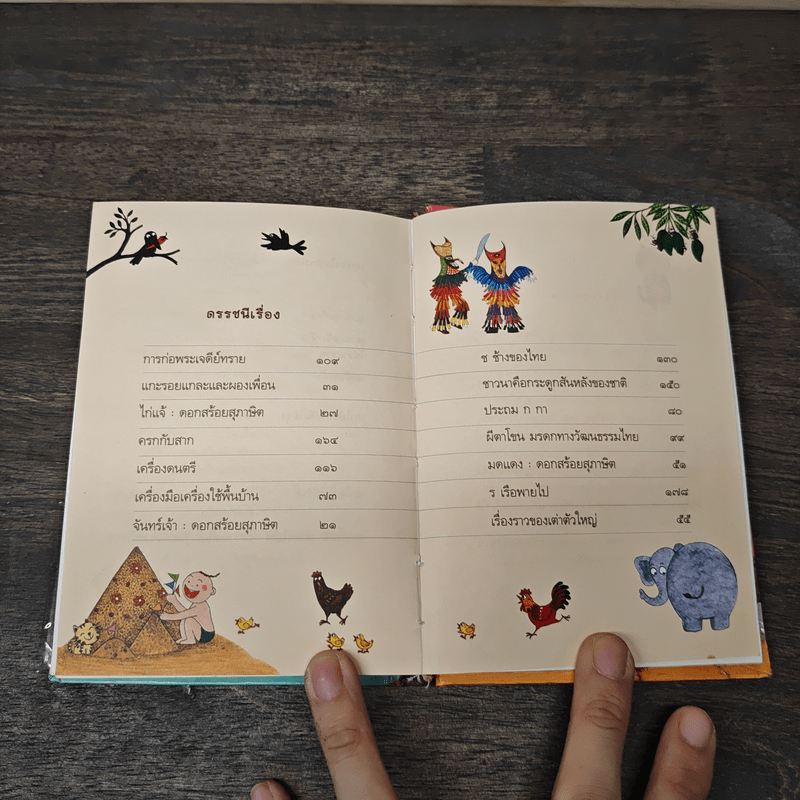 ดรรชนีเรื่อง
การก่อพระเจดีย์ทราย ๑๐๙
แกะรอยแกละและผองเพื่อน ๓๑
ไก่แจ้ : ดอกสร้อยสุภาษิต ๒๗
ครกกับสาก ๑๖๔
เครื่องดนตรี ๑๑๖
เครื่องมือเครื่องใช้พื้นบ้าน ๗๓
จันทร์เจ้า : ดอกสร้อยสุภาษิต ๒๑
ช ช้างของไทย ๑๓๐
ชาวนาคือกระดูกสันหลังของชาติ ๑๕๐
ประถม ก กา ๘๐
ผีตาโขน มรดกทางวัฒนธรรมไทย ๙๙
มดแดง : ดอกสร้อยสุภาษิต ๕๑
ร เรือพายไป ๑๗๘
เรื่องราวของเต่าตัวใหญ่ ๕๕